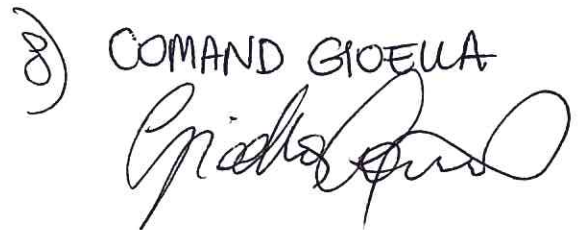 8) COMAND GIOELLA
Gioella Comand